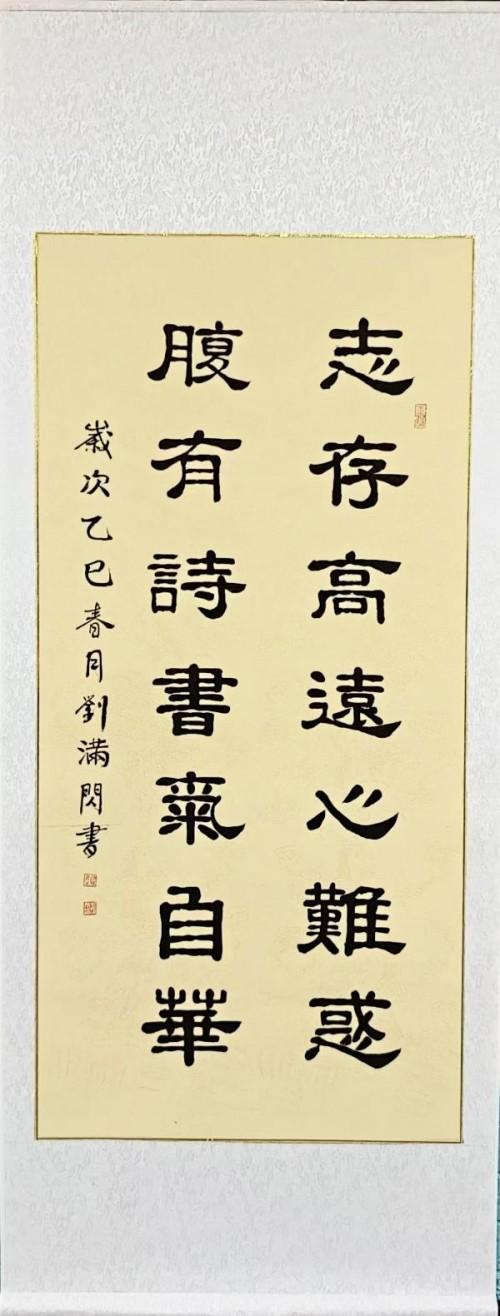 志存高遠心難惑
腹有詩書氣自華
歲次乙巳春月劉滿閃書